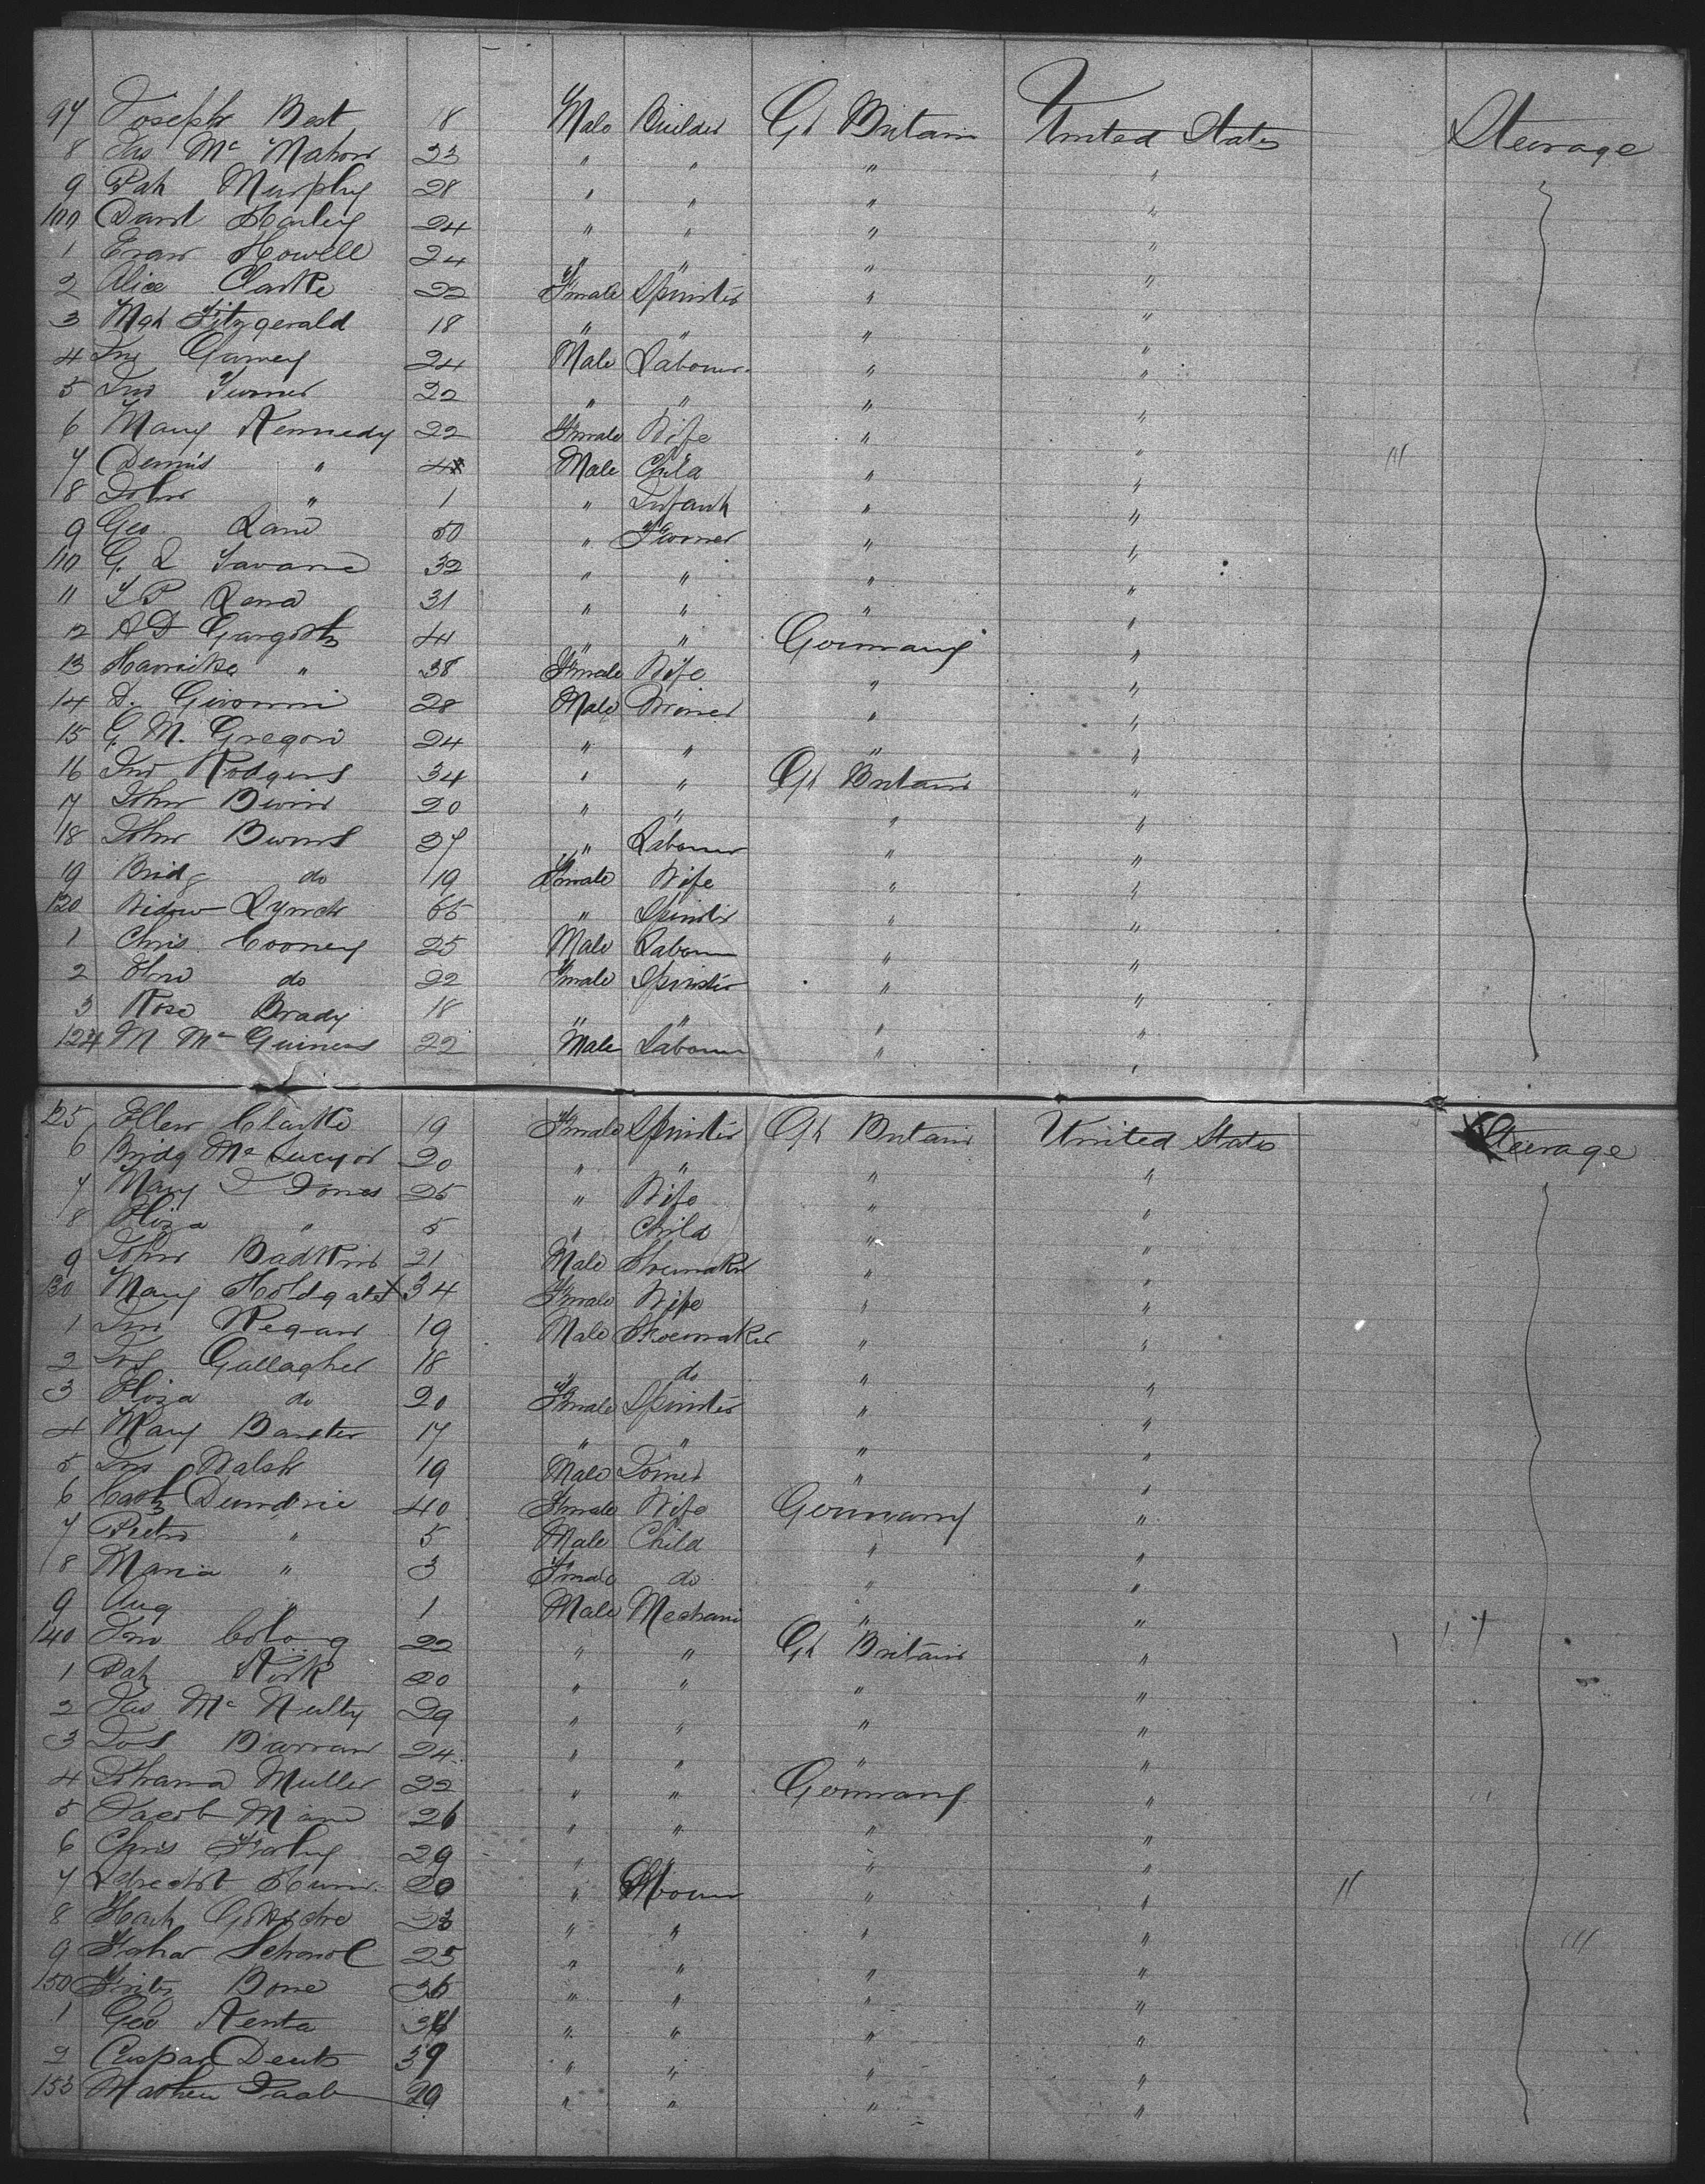 97 Joseph Best 18 Male Builder Gt Britain United States Steerage
8 Jas Mc Mahon 23 " " " "
9 Pat Murphy 28 " " " "
100 David Harley 24 " " " "
1 Evan Howell 24 " " " "
2 Alice Clarke 22 Female Spinster " "
3 Mgt Fitzgerald 18 " " " "
4 Jno Gurney 24 Male Labourer " "
5 Jno Turner 22 " " " "
6 Mary Kennedy 22 Female Wife " "
7 Dennis " 4 Male Child " "
8 John " 1 " Infant " "
9 Geo Lane 50 " Farmer " "
110 G. L 32 " " " "
11 31 " " " "
12 A D 44 " " Germany "
13 " 38 Female Wife " "
14 D. Giovanni 28 Male Miner " "
15 G. M. Gregori 24 " " " "
16 Jno Rodgers 34 " " Gt Britain "
17 John 20 " " " "
18 John Burns 27 " Labourer " "
19 Bridg do 19 Female Wife " "
120 Widow Lynch 65 " Spinster " "
1 Chris Cooney 25 Male Labourer " "
2 do 22 Female Spinster " "
3 Rose Brady 18 " " " "
124 M Mc Guiness 22 Male Labourer " "
125 Ellen Clarke 19 Female Spinster Gt Britain United States Steerage
6 Bridg Mc 20 " " " "
7 Mary J Jones 25 " Wife " "
8 Eliza " 5 " Child " "
9 John 21 Male Shoemaker " "
130 Mary Holdgate X 34 Female Wife " "
1 Jno Regan 19 Male Shoemaker " "
2 Jas Gallagher 18 " do " "
3 Eliza do 20 Female Spinster " "
4 Mary Baxter 17 " " " "
5 Jno Walsh 19 Male Joiner " "
6 Cath 40 Female Wife Germany "
7 Pietro " 5 Male Child " "
8 Maria " 3 Female do " "
9 Aug " 1 Male Mechanic " "
140 Jno 22 " " Gt Britain "
1 Pat Kirk 20 " " " "
2 Jas Mc Nulty 29 " " " "
3 Jos Barran 24 " " " "
4 Johanna Muller 22 " " Germany "
5 Jacob 26 " " " "
6 Chris 29 " " " "
7 20 " Labourer " "
8 23 " " " "
9 25 " " " "
150 Fritz Bone 36 " " " "
1 Geo Kenta " " " "
2 Caspar Deuts 39 " " " "
153 Mathew 29 " " " "